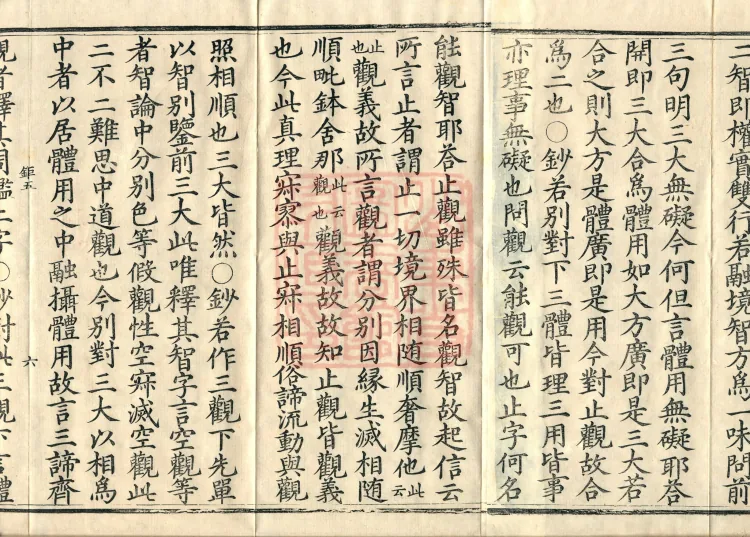 二智即權實雙行若融境智方爲一味問前
三句明三大無礙今何但言體用無礙耶荅
開即三大合爲體用如大方廣即是三大若
合之則大方是體廣即是用今對止觀故合
爲二也○鈔若別對下三體皆理三用皆事
亦理事無礙也問觀云能觀可也止字何名
能觀智耶荅止觀雖殊皆名觀智故起信云
所言止者謂止一切境界相隨順奢摩他此云
止也觀義故所言觀者謂分別因緣生滅相隨
順毗鉢舍那此云觀也觀義故故知止觀皆觀義
也今此真理寂寥與止寂相順俗諦流動與觀
照相順也三大皆然○鈔若作三觀下先單
以智別鑒前三大此唯釋其智字言空觀等
者智論中分別色等假觀性空寂滅空觀此
二不二難思中道觀也今別對三大以相爲
中者以居體用之中融攝體用故言三諦齊
鉅五
六